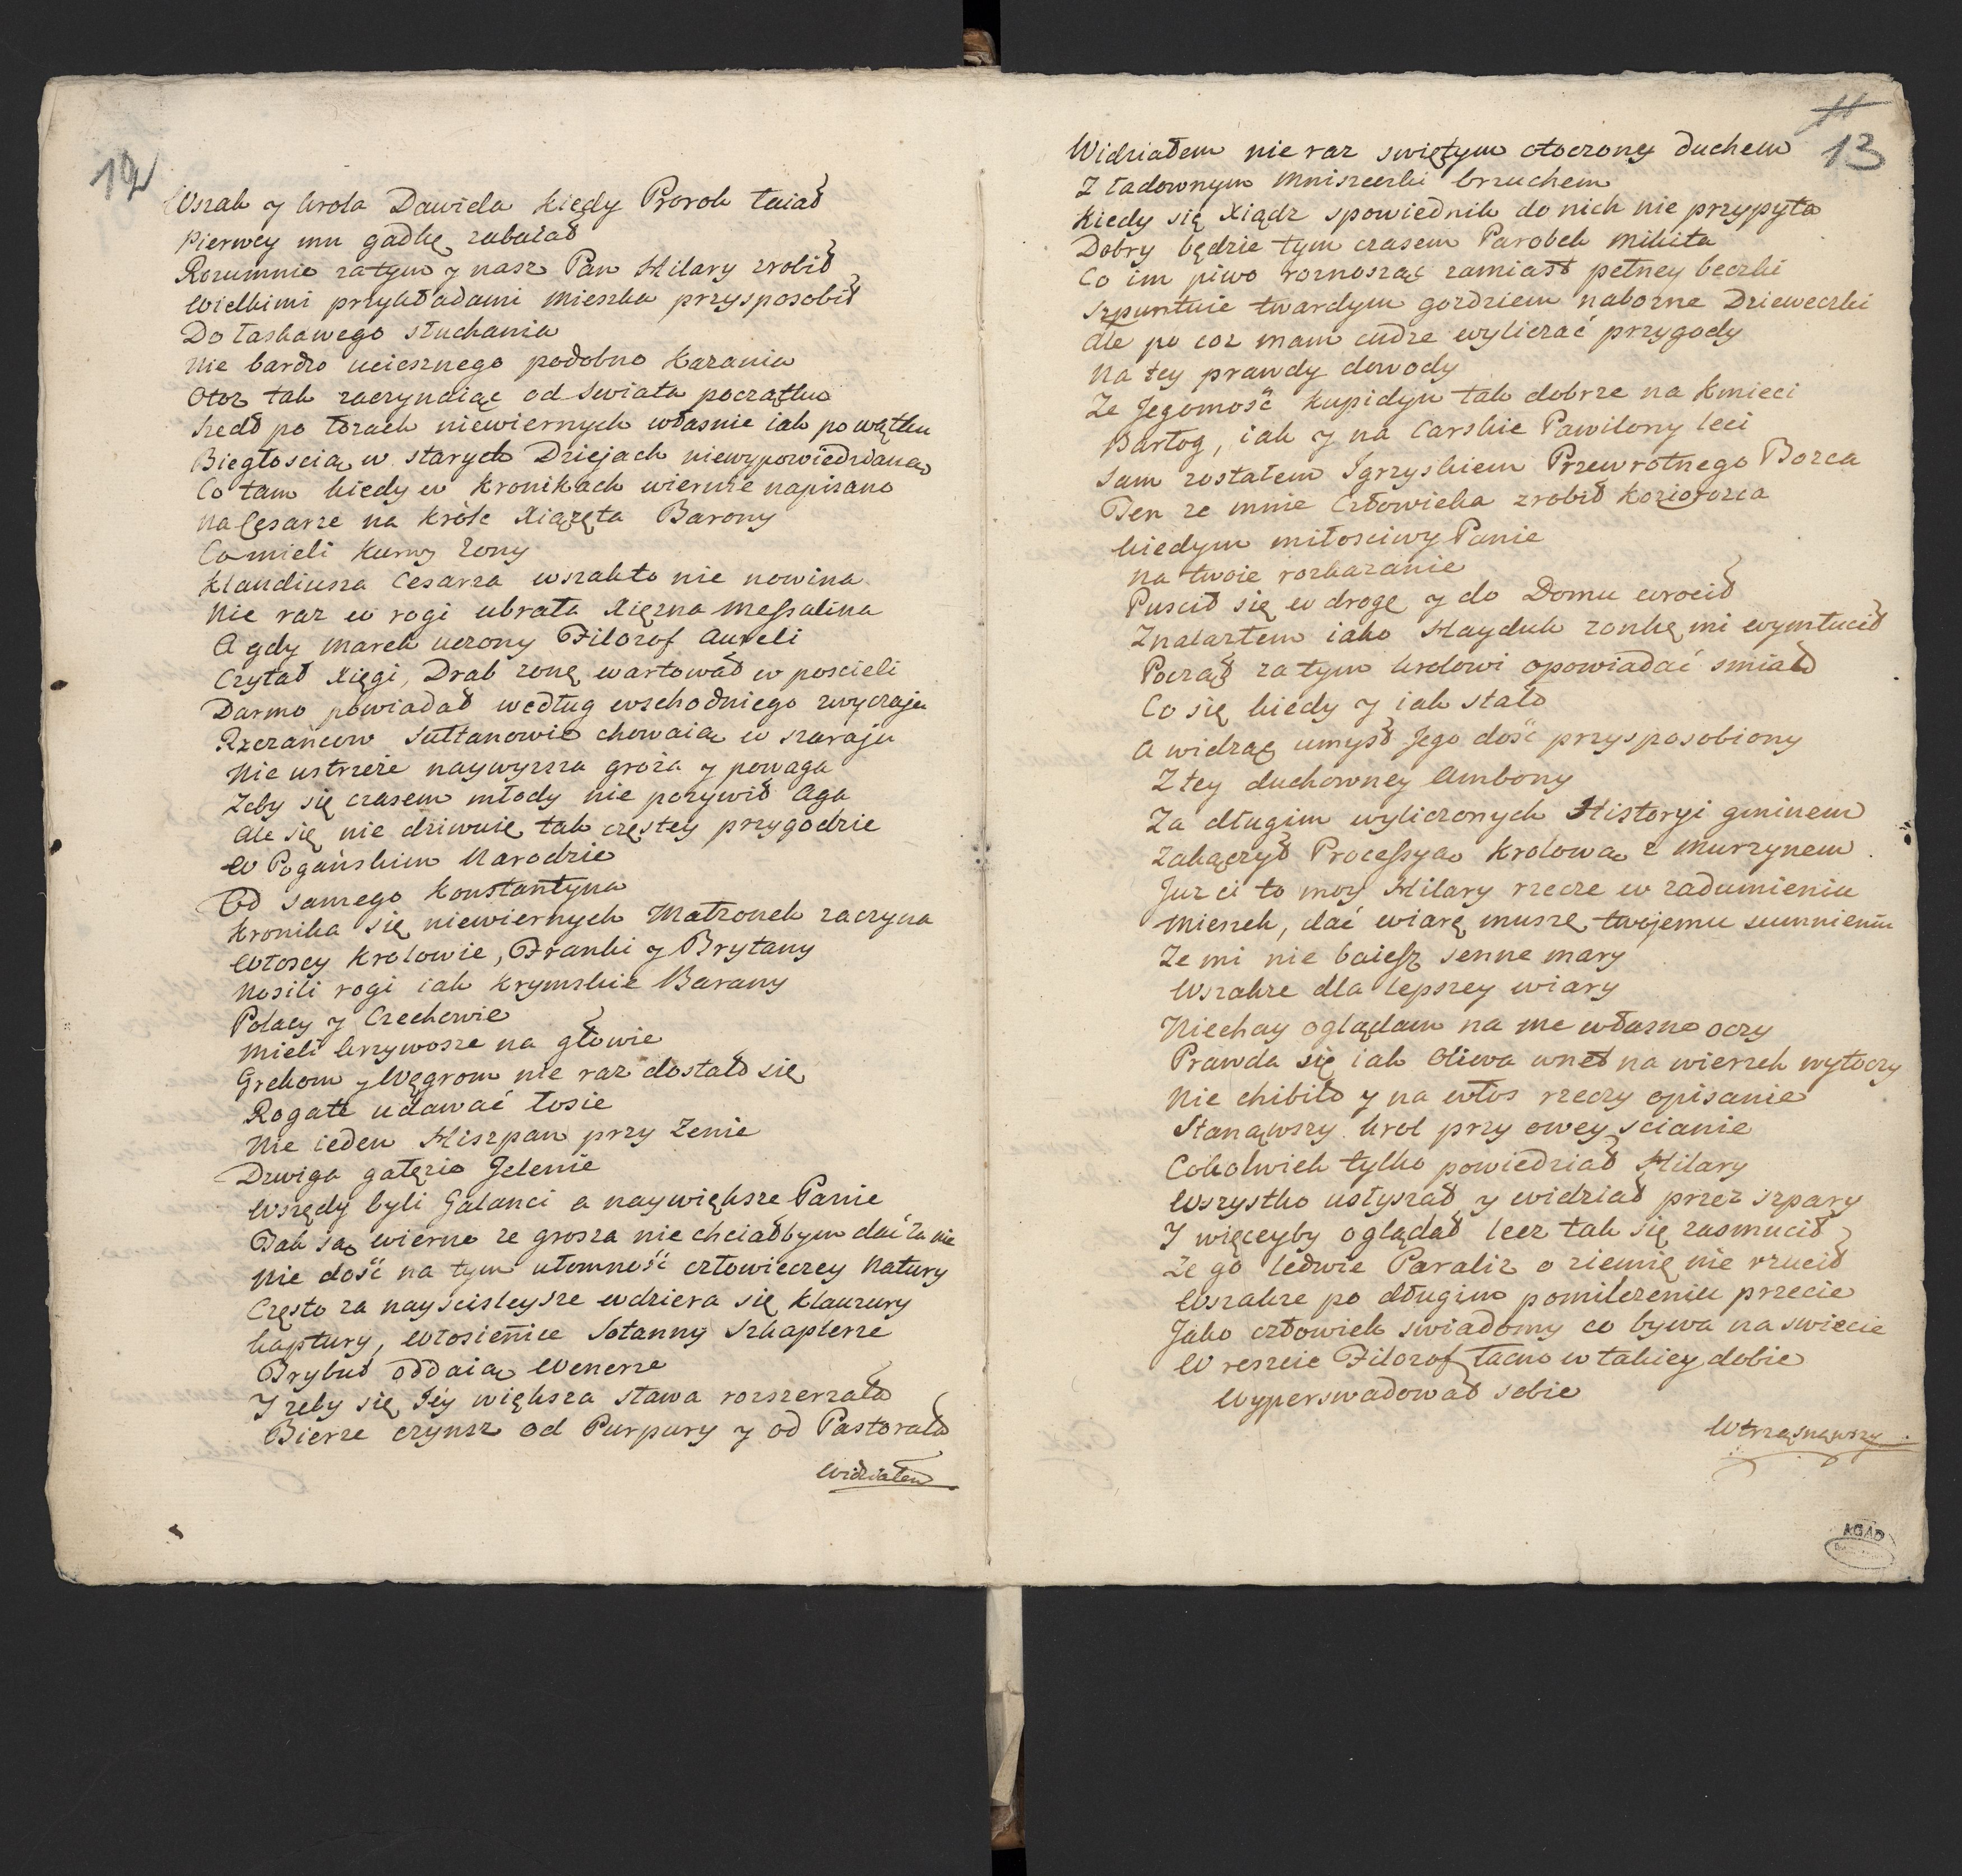 12
Wszak y krola Dawida kiedy Prorok łaiał
Pierwey mu gadkę zabaiał
Rozumnie zatym y nasz Pan Hilary zrobił
Wielkimi przykładami Mieszka przysposobił
Do łaskawego słuchania
Nie bardzo uciesznego podobno kazania
Otoz tak zaczynaiąc od swiata początku
Szedł po łozach niewiernych własnie iak po wątku
Biegłoscią w starych Dziejach niewypowiedzianą
Co tam kiedy w kronikach wiernie napisano
Na Cęsarze na króle Xiązęta Barony
Co mieli kurwy zony
Klaudiusza Cesarza wszak to nie nowina
Nie raz w rogi ubrała Xięzna Messalina
A gdy Marek uczony Filozof Aureli
Czytał Xięgi, Drab zonę wartował w poscieli
Darmo powiadał według wschodniego zwyczaju
Rzezańcow Sułtanowie chowaią w szaraju
Nie ustrzeże naywyzsza groza y powaga
Zeby się czasem młody nie pozywił Aga
Ale się nie dziwuię tak częstey przygodzie
W Pogańskim Narodzie
Od samego Konstantyna
Kronika się niewiernych Matronek zaczyna
Włoscy krolowie, Franki y Brytany
Nosili rogi iak Krymskie Barany
Polacy y Czechowie
Mieli krzywosze na głowie
Grekom y Węgrom nie raz dostało się
Rogate udawać łosie
Nie ieden Hiszpan przy Zenie
Dzwiga gałęzie Jelenie
Wszędy byli Galanci a naywiększe Panie
Tak są wierne ze grosza nie chciałbym dać za nie
Nie dość na tym ułomność człowieczey Natury
Często za nayscisleysze wdziera się klauzury
kaptury, Włosiennice Sotanny Szkaplerze
Trybut oddaią Wenerze
I zeby się Jey większa sława rozszerzała
Bierze czynsz od Purpury y od Pastorała
Widziałem
11
13
Widziałem nie raz swiętym otoczony duchem
Z ładownym Mniszeczki brzuchem
Kiedy się Xiądz spowiednik do nich nie przypyta
Dobry będzie tym czasem Parobek Mikita
Co im piwo roznosząc zamiast pełney beczki
Szpuntuie twardym gozdziem nabozne Dzieweczki
Ale po coz mam cudze wyliczać przygody
Na tey prawdy dowody
Ze Jegomość Kupidyn tak dobrze na Kmieci
Barłog, iak y na Carskie Pawilony leci
Sam zostałem Igrzyskiem Przewrotnego Bozca
Ten ze mnie Człowieka zrobił koziorozca
kiedym miłosciwy Panie
Na twoie rozkazanie
Puscił się w drogę y do Domu wrocił
Znalazłem iako Hayduk zonkę mi wymłucił
Począł za tym krolowi opowiadać smiało
Co się kiedy y iak stało
A widząc umysł Jego dość przysposobiony
Z tey duchowney Ambony
Za długim wyliczonych Historyi gminem
Zakączył Processyą krolową z Murzynem
Juz ci to moy Hilary rzecze w zadumieniu
Mieszek, dać wiarę muszę twojemu sumnieniu
Ze mi nie baiesz senne mary
Wszakze dla lepszey wiary
Niechay oglądam na me własne oczy
Prawda się iak Oliwa wnet na wierzch wytoczy
Nie chibiło y na włos rzeczy opisanie
Stanąwszy krol przy owey scianie
Cokolwiek tylko powiedział Hilary
Wszystko usłyszał y widział przez szpary
I więceyby oglądał lecz tak się zasmucił
Ze go ledwie Paraliz o ziemię nie rzucił
Wszakze po długim pomilczeniu przecie
Jako człowiek swiadomy co bywa na swiecie
W reszcie Filozof łacno w takiey dobie
Wyperswadował sobie
Wtrząsnąwszy
AGAD